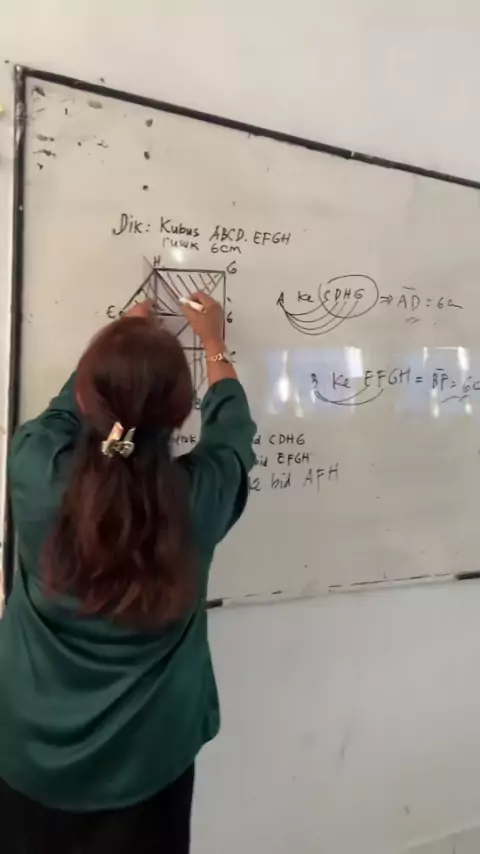 Dik: Kubus ABCD.EFGH
rusuk 6cm
H G
E 6
C
A ke CDHG ⇒ AD = 6c
B ke EFGH = BF = 6c
CDHG
bid EFGH
bid AFH